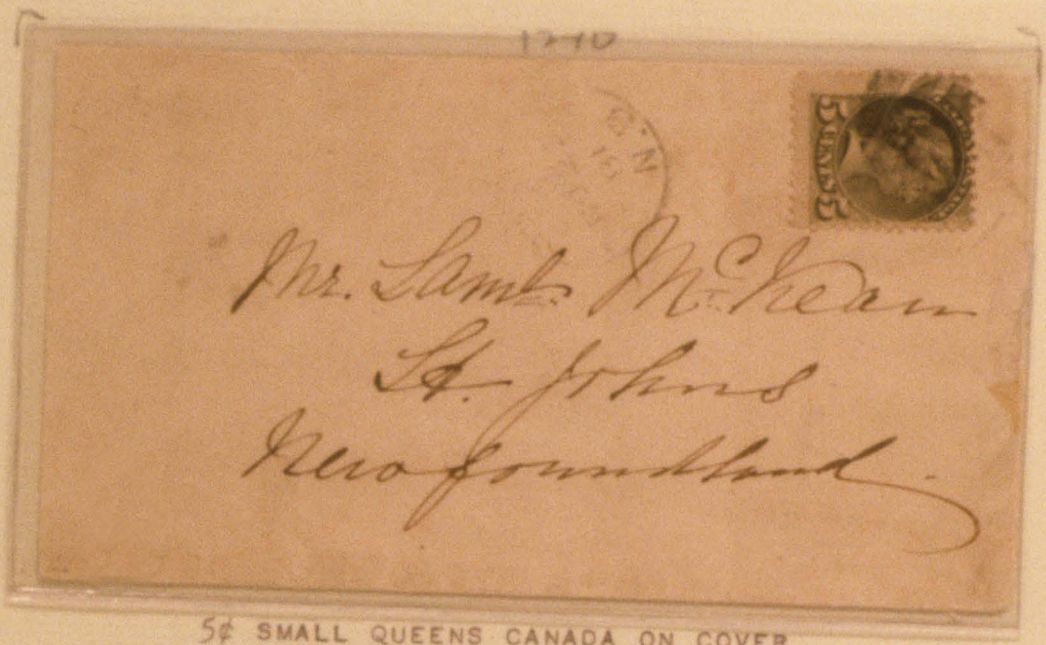 5 CENTS
Mr. Saml. McKean
St. Johns
Newfoundland.
5¢ SMALL QUEENS CANADA ON COVER